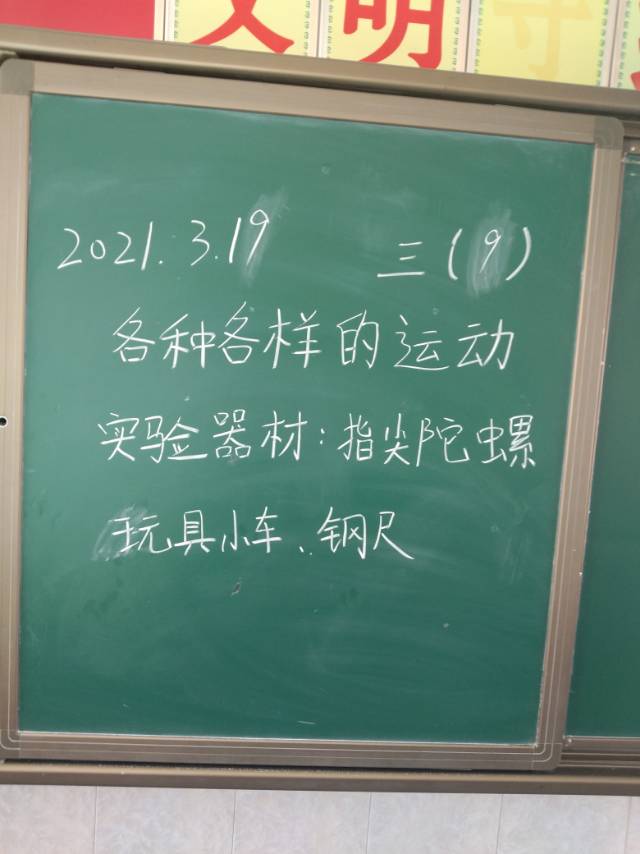 文明守
2021.3.19 三(9)
各种各样的运动
实验器材:指尖陀螺
玩具小车、钢尺